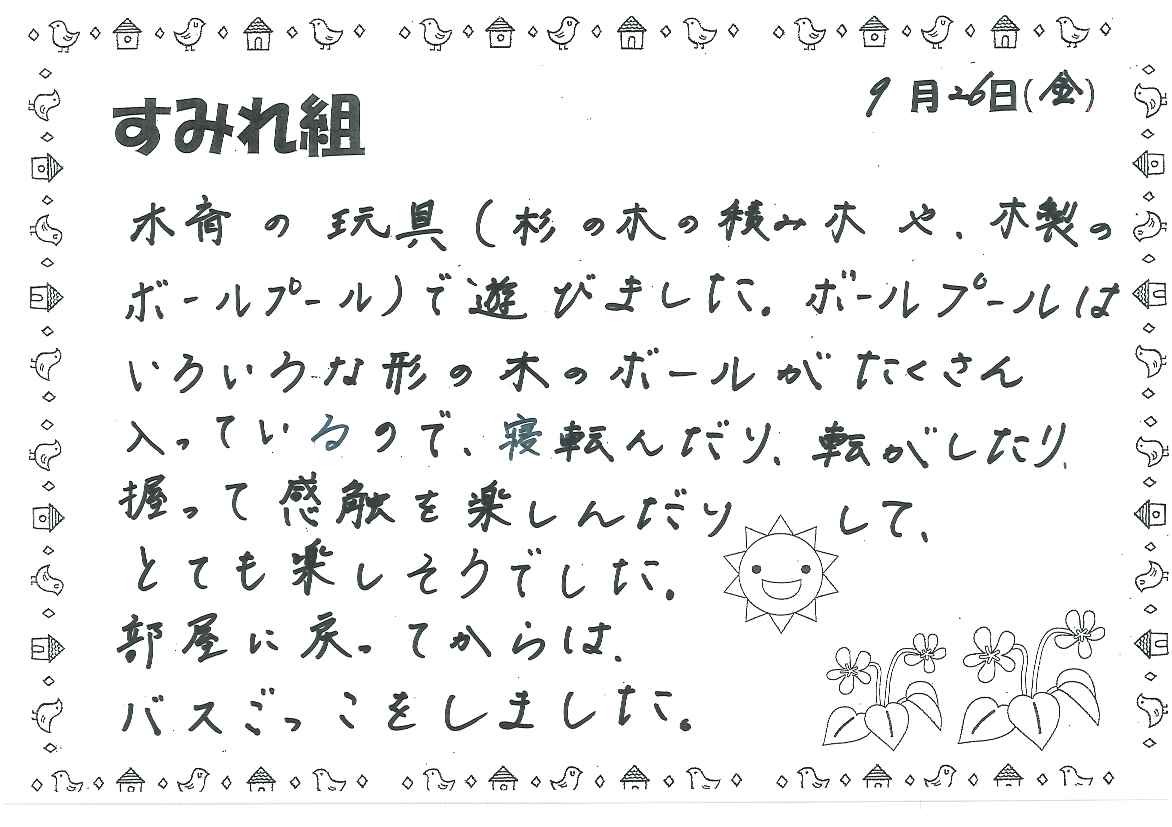 9月26日(金)
すみれ組
木育の玩具(杉の木の積み木や、木製の
ボールプール)で遊びました。ボールプールは
いろいろな形の木のボールがたくさん
入っているので、寝転んだり、転がしたり、
握って感触を楽しんだりして、
とても楽しそうでした。
部屋に戻ってからは、
バスごっこをしました。